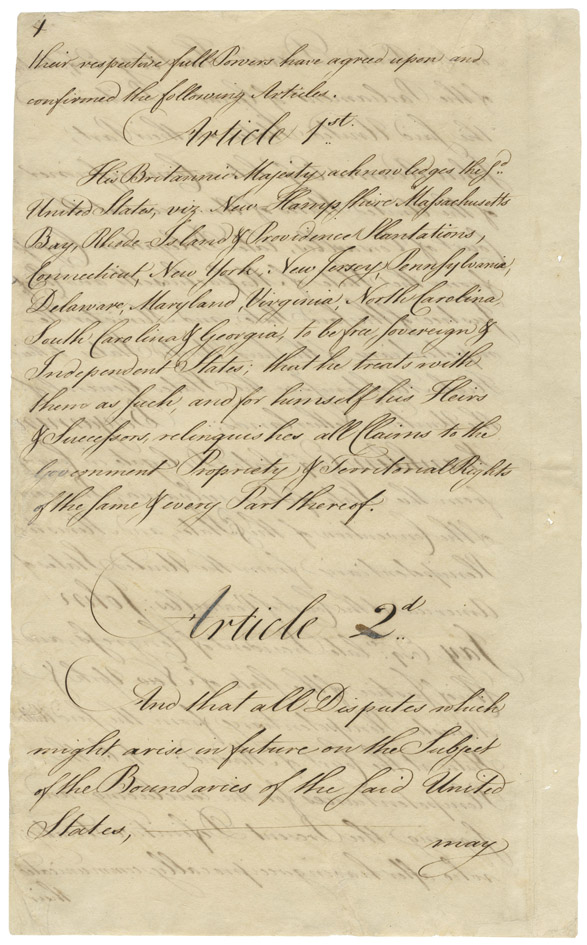 4
their respective full Powers have agreed upon and
confirmed the following Articles.
Article 1st.
His Britannic Majesty acknowledges the sd.
United States, viz. New Hampshire Massachusetts
Bay, Rhode Island & Providence Plantations,
Connecticut, New York, New Jersey, Pennsylvania,
Delaware, Maryland, Virginia, North Carolina,
South Carolina & Georgia, to be free sovereign &
Independent States; that he treats with
them as such, and for himself his Heirs
& Successors, relinquishes all Claims to the
Government Propriety & Territorial Rights
of the same & every Part thereof.
Article 2d.
And that all Disputes which
might arise in future on the Subject
of the Boundaries of the said United
States,
may